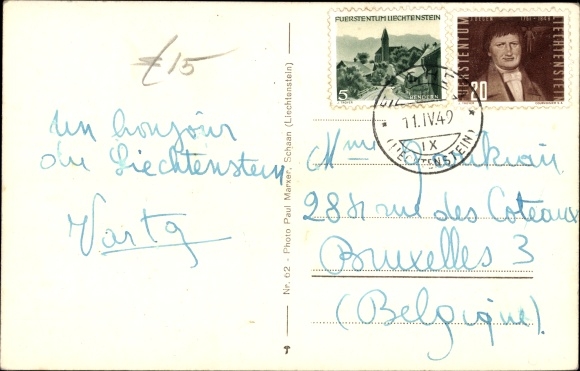 € 15
un bonjour
du Liechtenstein
Varta
Nr. 62 - Photo Paul Marxer, Schaan (Liechtenstein)
FUERSTENTUM LIECHTENSTEIN
5
BENDERN
1781 - 1848
FUERSTENTUM
LIECHTENSTEIN
20
11.IV.49
IX
(LIECHTENSTEIN)
Mme
rue des Coteaux
Bruxelles 3
(Belgique).